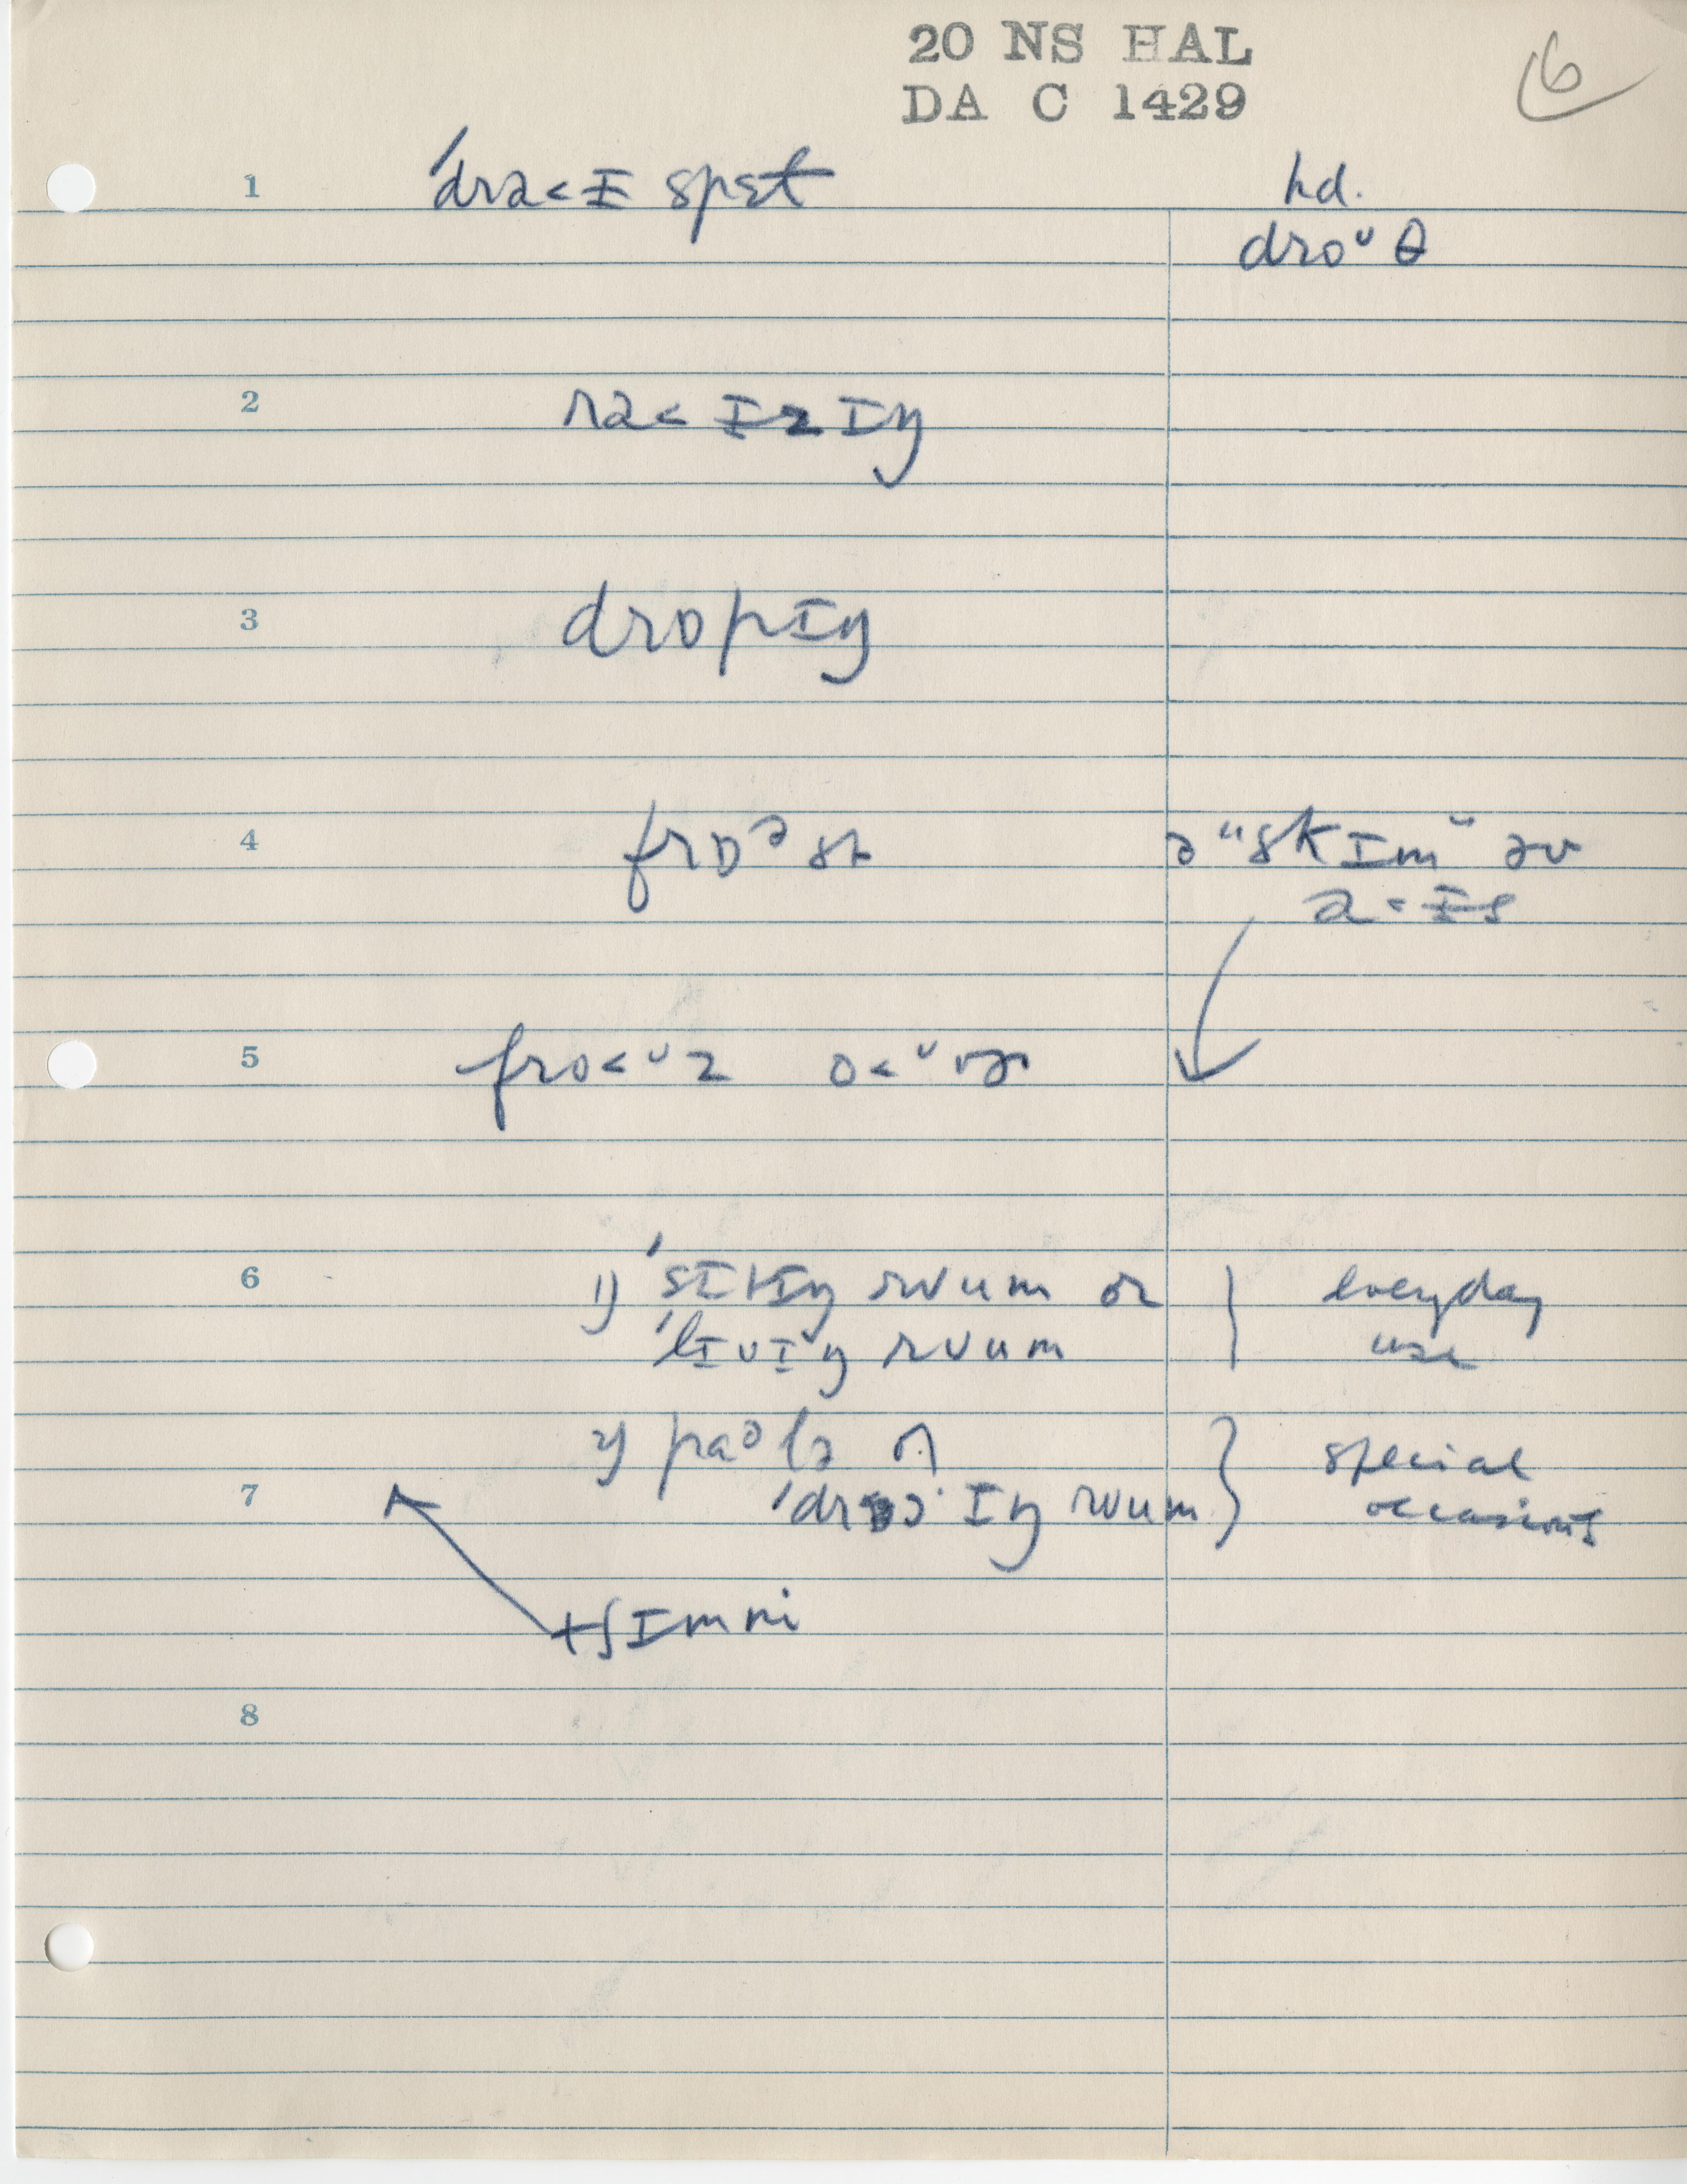 20 NS HAL
DA C 1429
6
1 ˈdrə<ᵻ spɛt
hd.
droᵘθ
2 rə<ᵻzɪŋ
3 drɒpɪŋ
4 frɒᵊst
ə "skɪm" əv
ə<ᵻs
5 fro<ᵘz o<ᵘvɚ
6 1) ˈsɪtɪŋ rʊum or
ˈlɪvɪŋ rʊum
everyday
use
2) paᵊlɚ or
7 ˈdrɒɔ·ɪŋ rʊum
special
occasions
tʃɪmni
8